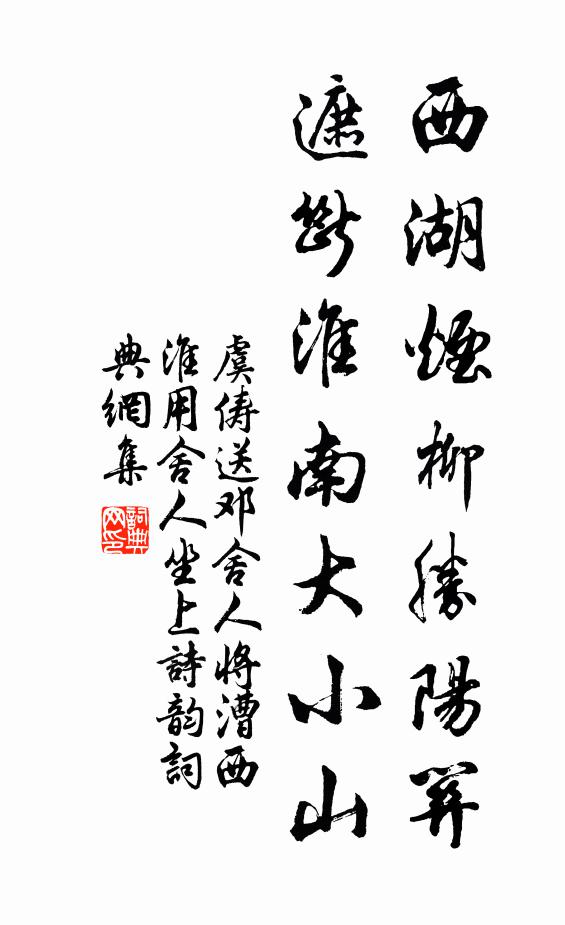 西湖煙柳勝陽關
遮斷淮南大小山
虞儔送邓舍人将漕西
淮用舍人坐上詩韵詞
典網集
詞典网印